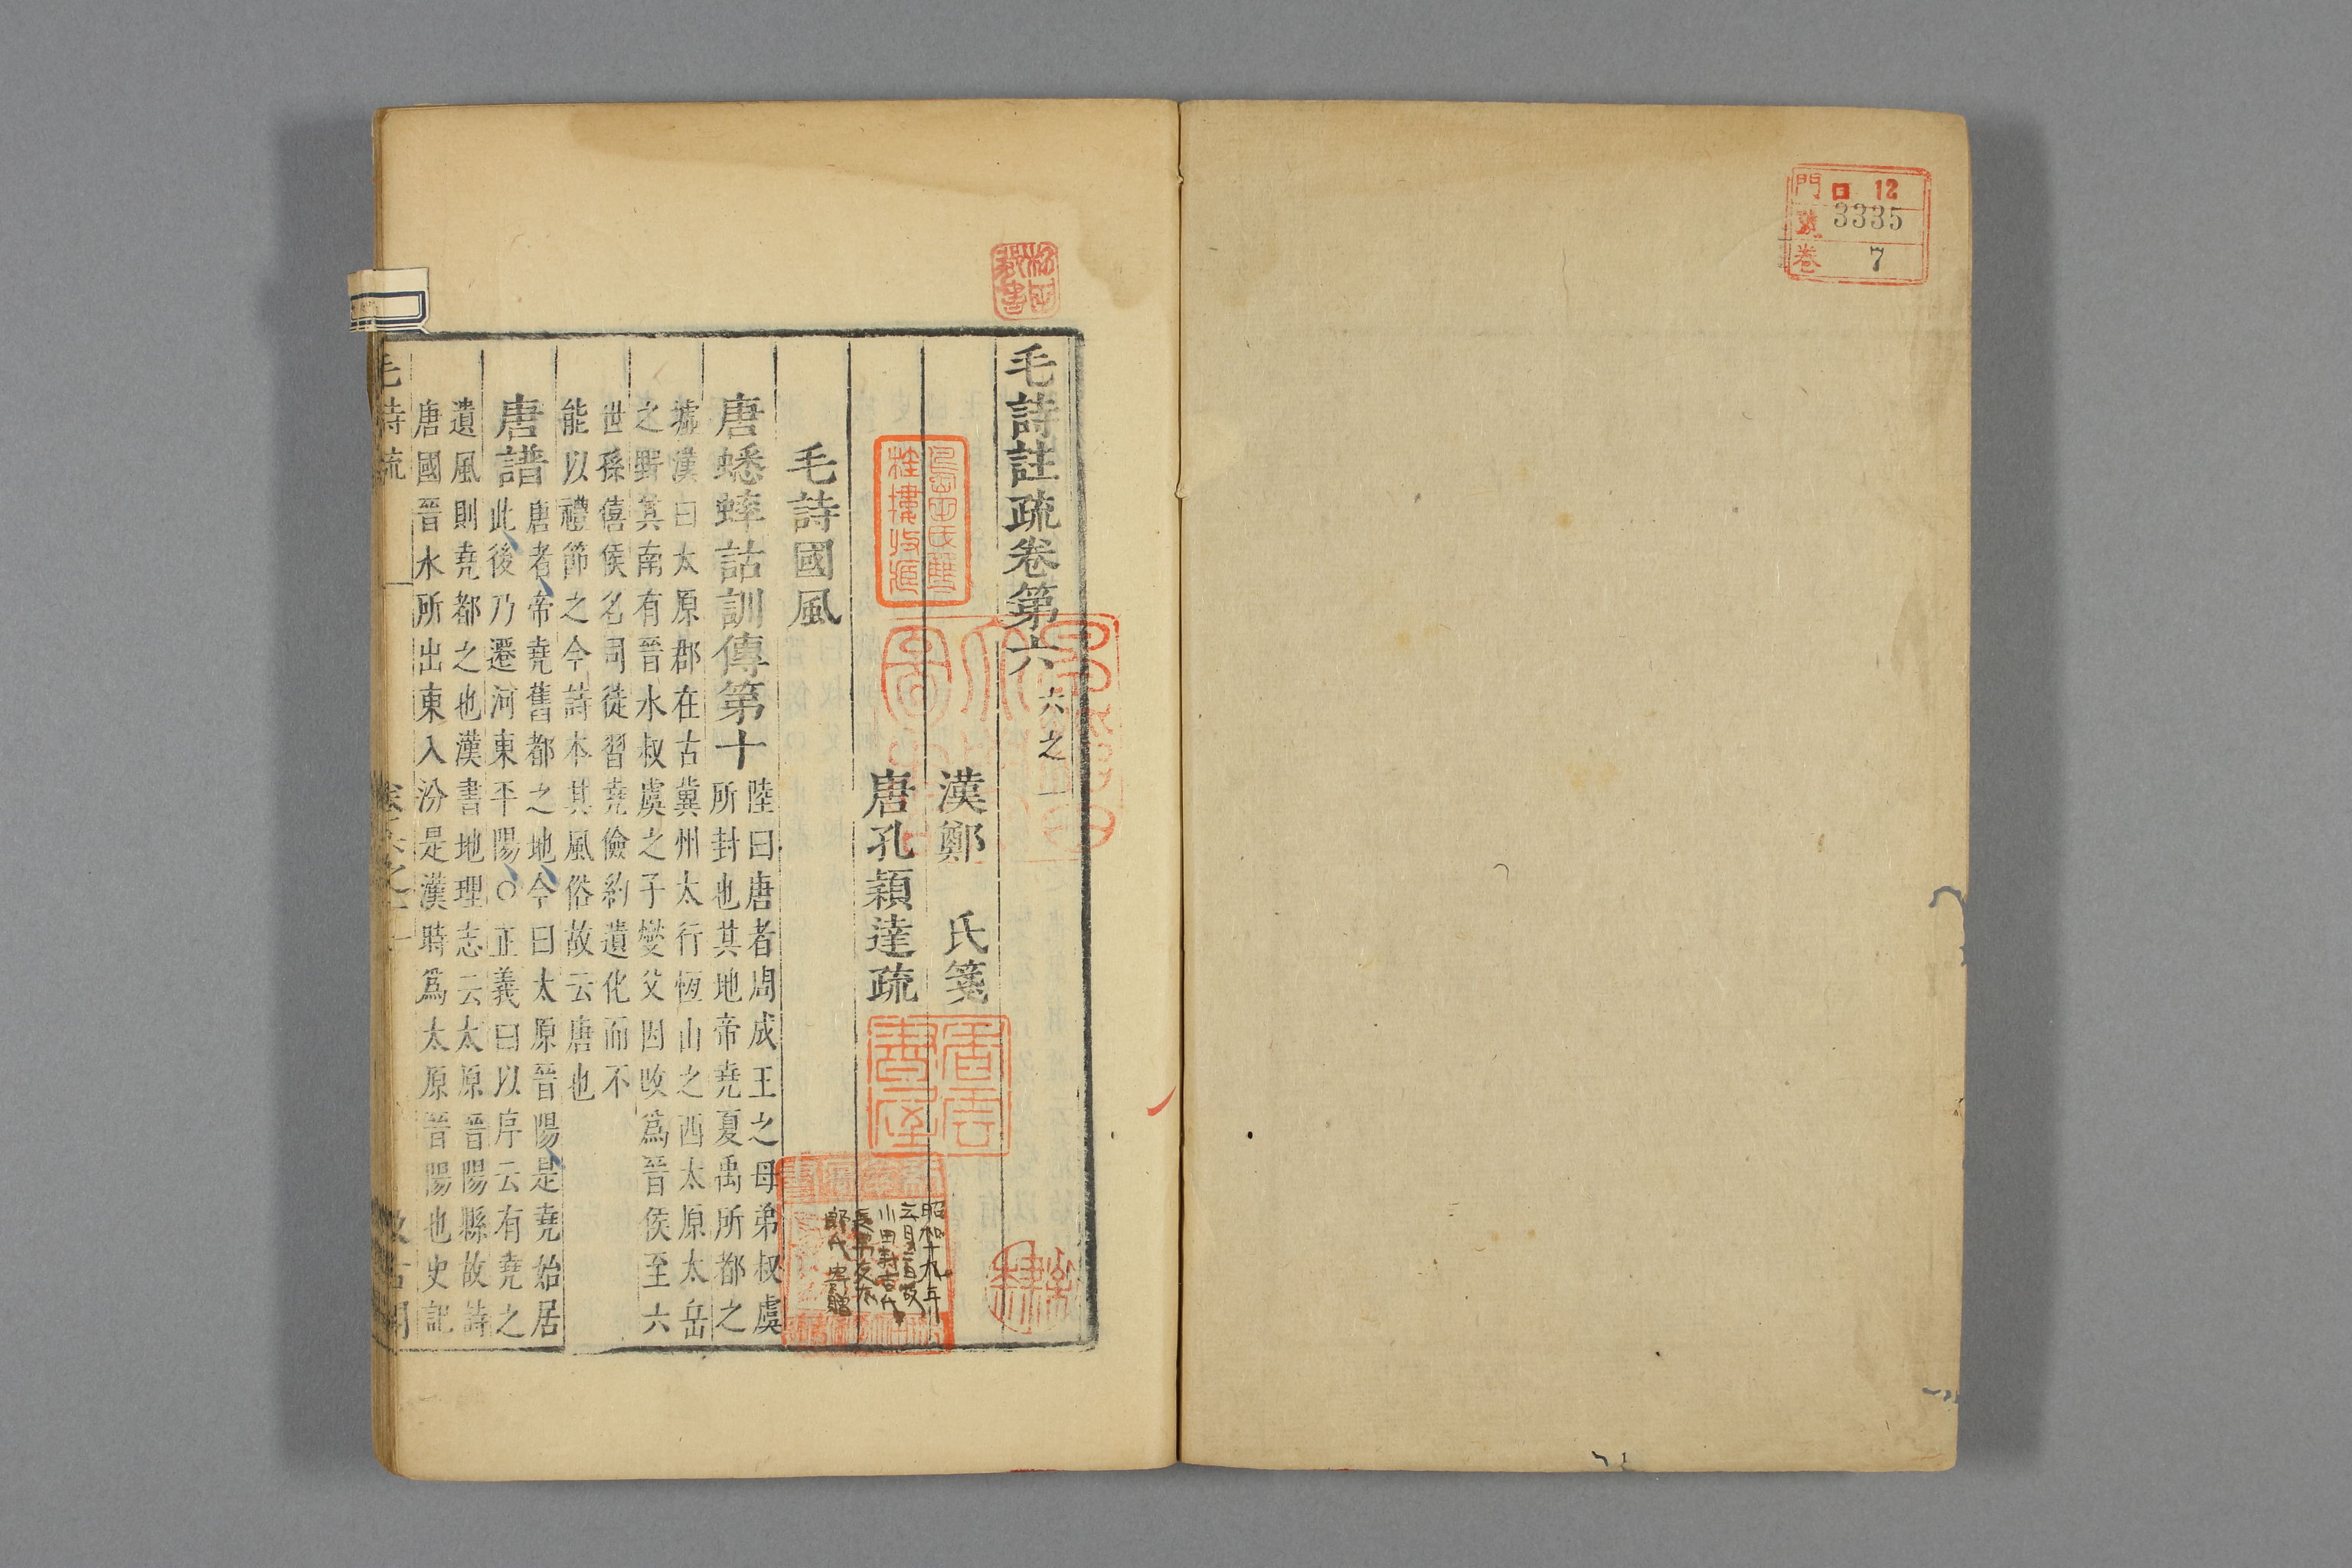 門 口 12
號 3335
巻 7
毛詩註疏卷第六 六之一
漢鄭 氏箋
唐孔穎達疏
毛詩國風
唐蟋蟀詁訓傳第十
陸曰唐者周成王之母弟叔虞
所封也其地帝堯夏禹所都之
墟漢曰太原郡在古冀州太行恆山之西太原太岳
之野其南有晉水叔虞之子燮父因改爲晉侯至六
世孫僖侯名司徒習堯儉約遺化而不
能以禮節之今詩本其風俗故云唐也
唐譜
唐者帝堯舊都之地今曰太原晉陽是堯始居
此後乃遷河東平陽○正義曰以序云有堯之
遺風則堯都之也漢書地理志云太原晉陽縣故詩
唐國晉水所出東入汾是漢時爲太原晉陽也史記
昭和十九年
小田
郎氏寄贈